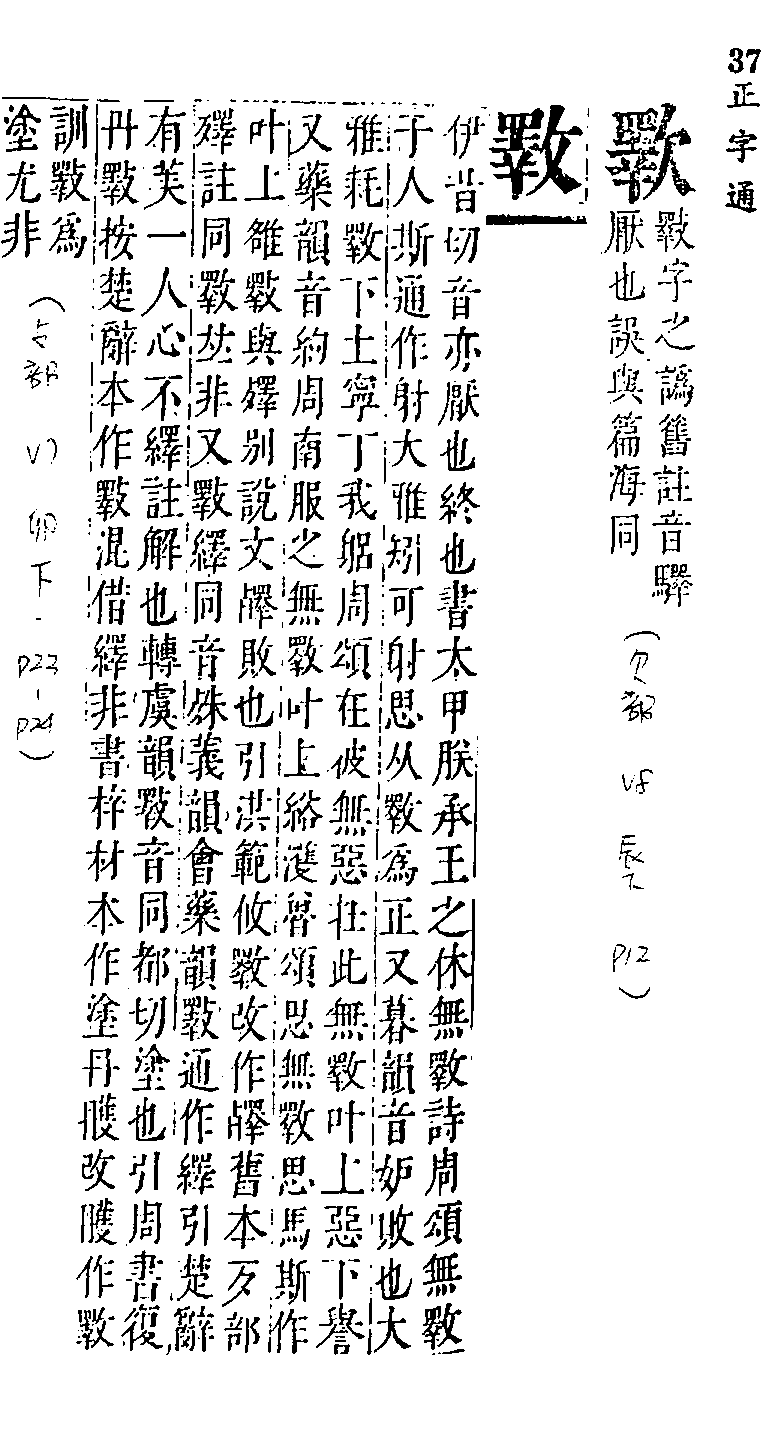 37 正字通
歝 斁字之譌舊註音驛
厭也誤與篇海同
(欠部 V8 辰下 P12)
斁
伊昔切音亦厭也終也書太甲朕承王之休無斁詩周頌無斁
于人斯通作射大雅矧可射思从斁為正又暮韻音妒敗也大
雅耗斁下土寧丁我躬周頌在彼無惡在此無斁叶上惡下譽
又藥韻音約周南服之無斁叶上綌濩魯頌思無斁思馬斯作
叶上雒斁與殬別說文殬敗也引洪範攸斁改作殬舊本歹部
殬註同斁𠀤非又斁繹同音殊義韻會藥韻斁通作繹引楚辭
有芙一人心不繹註解也轉虞韻斁音同都切塗也引周書復
丹斁按楚辭本作斁混借繹非書梓材本作塗丹雘改雘作斁
訓斁為
塗尤非
(攴部 V7 卯下 - P23-P24)